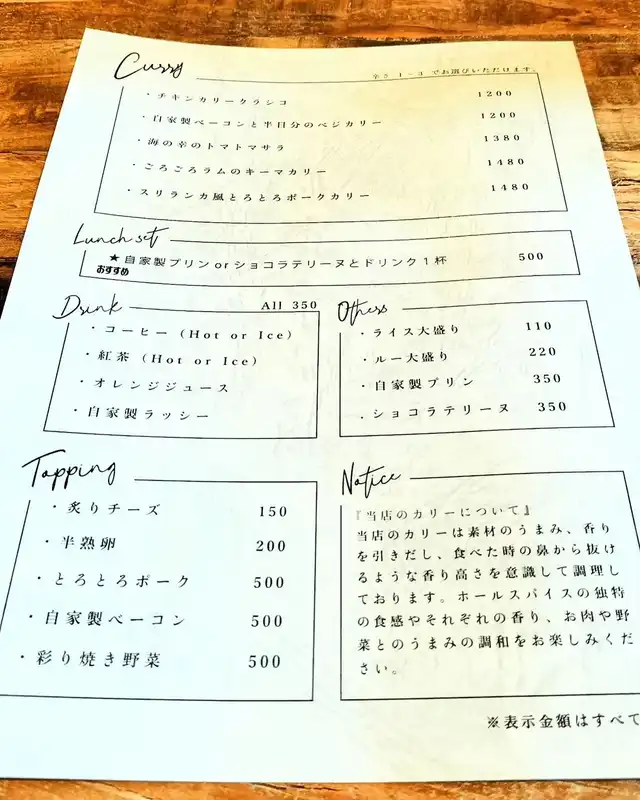 Curry
辛さ 1~3 でお選びいただけます。
・チキンカリークラシコ 1200
・自家製ベーコンと半日分のベジカリー 1200
・海の幸のトマトマサラ 1380
・ごろごろラムのキーマカリー 1480
・スリランカ風とろとろポークカリー 1480
Lunch set
★自家製プリンorショコラテリーヌとドリンク1杯 500
おすすめ
Drink All 350
・コーヒー (Hot or Ice)
・紅茶 (Hot or Ice)
・オレンジジュース
・自家製ラッシー
Others
・ライス大盛り 110
・ルー大盛り 220
・自家製プリン 350
・ショコラテリーヌ 350
Topping
・炙りチーズ 150
・半熟卵 200
・とろとろポーク 500
・自家製ベーコン 500
・彩り焼き野菜 500
Notice
『当店のカリーについて』
当店のカリーは素材のうまみ、香り
を引きだし、食べた時の鼻から抜け
るような香り高さを意識して調理し
ております。ホールスパイスの独特
の食感やそれぞれの香り、お肉や野
菜とのうまみの調和をお楽しみくだ
さい。
※表示金額はすべて